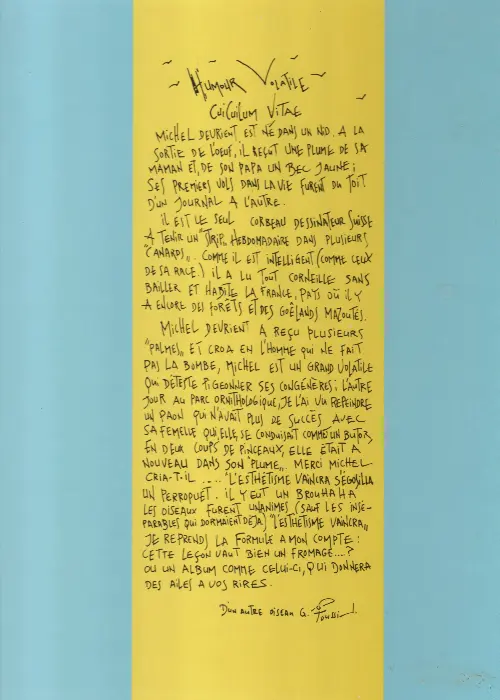 HUMOUR VOLATILE
CUICUILUM VITAE
MICHEL DEVRIENT EST NÉ DANS UN NID. A LA
SORTIE DE L'OEUF, IL REÇUT UNE PLUME DE SA
MAMAN ET, DE SON PAPA UN BEC JAUNE ;
SES PREMIERS VOLS DANS LA VIE FURENT DU TOIT
D'UN JOURNAL A L'AUTRE.
IL EST LE SEUL CORBEAU DESSINATEUR SUISSE
A TENIR UN "STRIP" HEBDOMADAIRE DANS PLUSIEURS
"CANARDS". COMME IL EST INTELLIGENT (COMME CEUX
DE SA RACE.) IL A LU TOUT CORNEILLE SANS
BAILLER ET HABITE LA FRANCE, PAYS OÙ IL Y
A ENCORE DES FORÊTS ET DES GOÊLANDS MAZOUTÉS.
MICHEL DEVRIENT A REÇU PLUSIEURS
"PALMES" ET CROA EN L'HOMME QUI NE FAIT
PAS LA BOMBE, MICHEL EST UN GRAND VOLATILE
QUI DÉTESTE PIGEONNER SES CONGÉNÈRES ; L'AUTRE
JOUR AU PARC ORNITHOLOGIQUE, JE L'AI VU REPEINDRE
UN PAON QUI N'AVAIT PLUS DE SUCCÈS AVEC
SA FEMELLE QUI, ELLE, SE CONDUISAIT COMME UN BUTOR,
EN DEUX COUPS DE PINCEAUX, ELLE ÉTAIT A
NOUVEAU DANS SON "PLUME". MERCI MICHEL
CRIA-T-IL .... "L'ESTHÉTISME VAINCRA S'ÉGOSILLA
UN PERROQUET. IL Y EUT UN BROUHAHA
LES OISEAUX FURENT UNANIMES (SAUF LES INSÉ-
PARABLES QUI DORMAIENT DÉJA) "L'ESTHÉTISME VAINCRA"
JE REPRENDS LA FORMULE A MON COMPTE :
CETTE LEÇON VAUT BIEN UN FROMAGE....?
OU UN ALBUM COMME CELUI-CI, QUI DONNERA
DES AILES A VOS RIRES.
D'UN AUTRE OISEAU G.